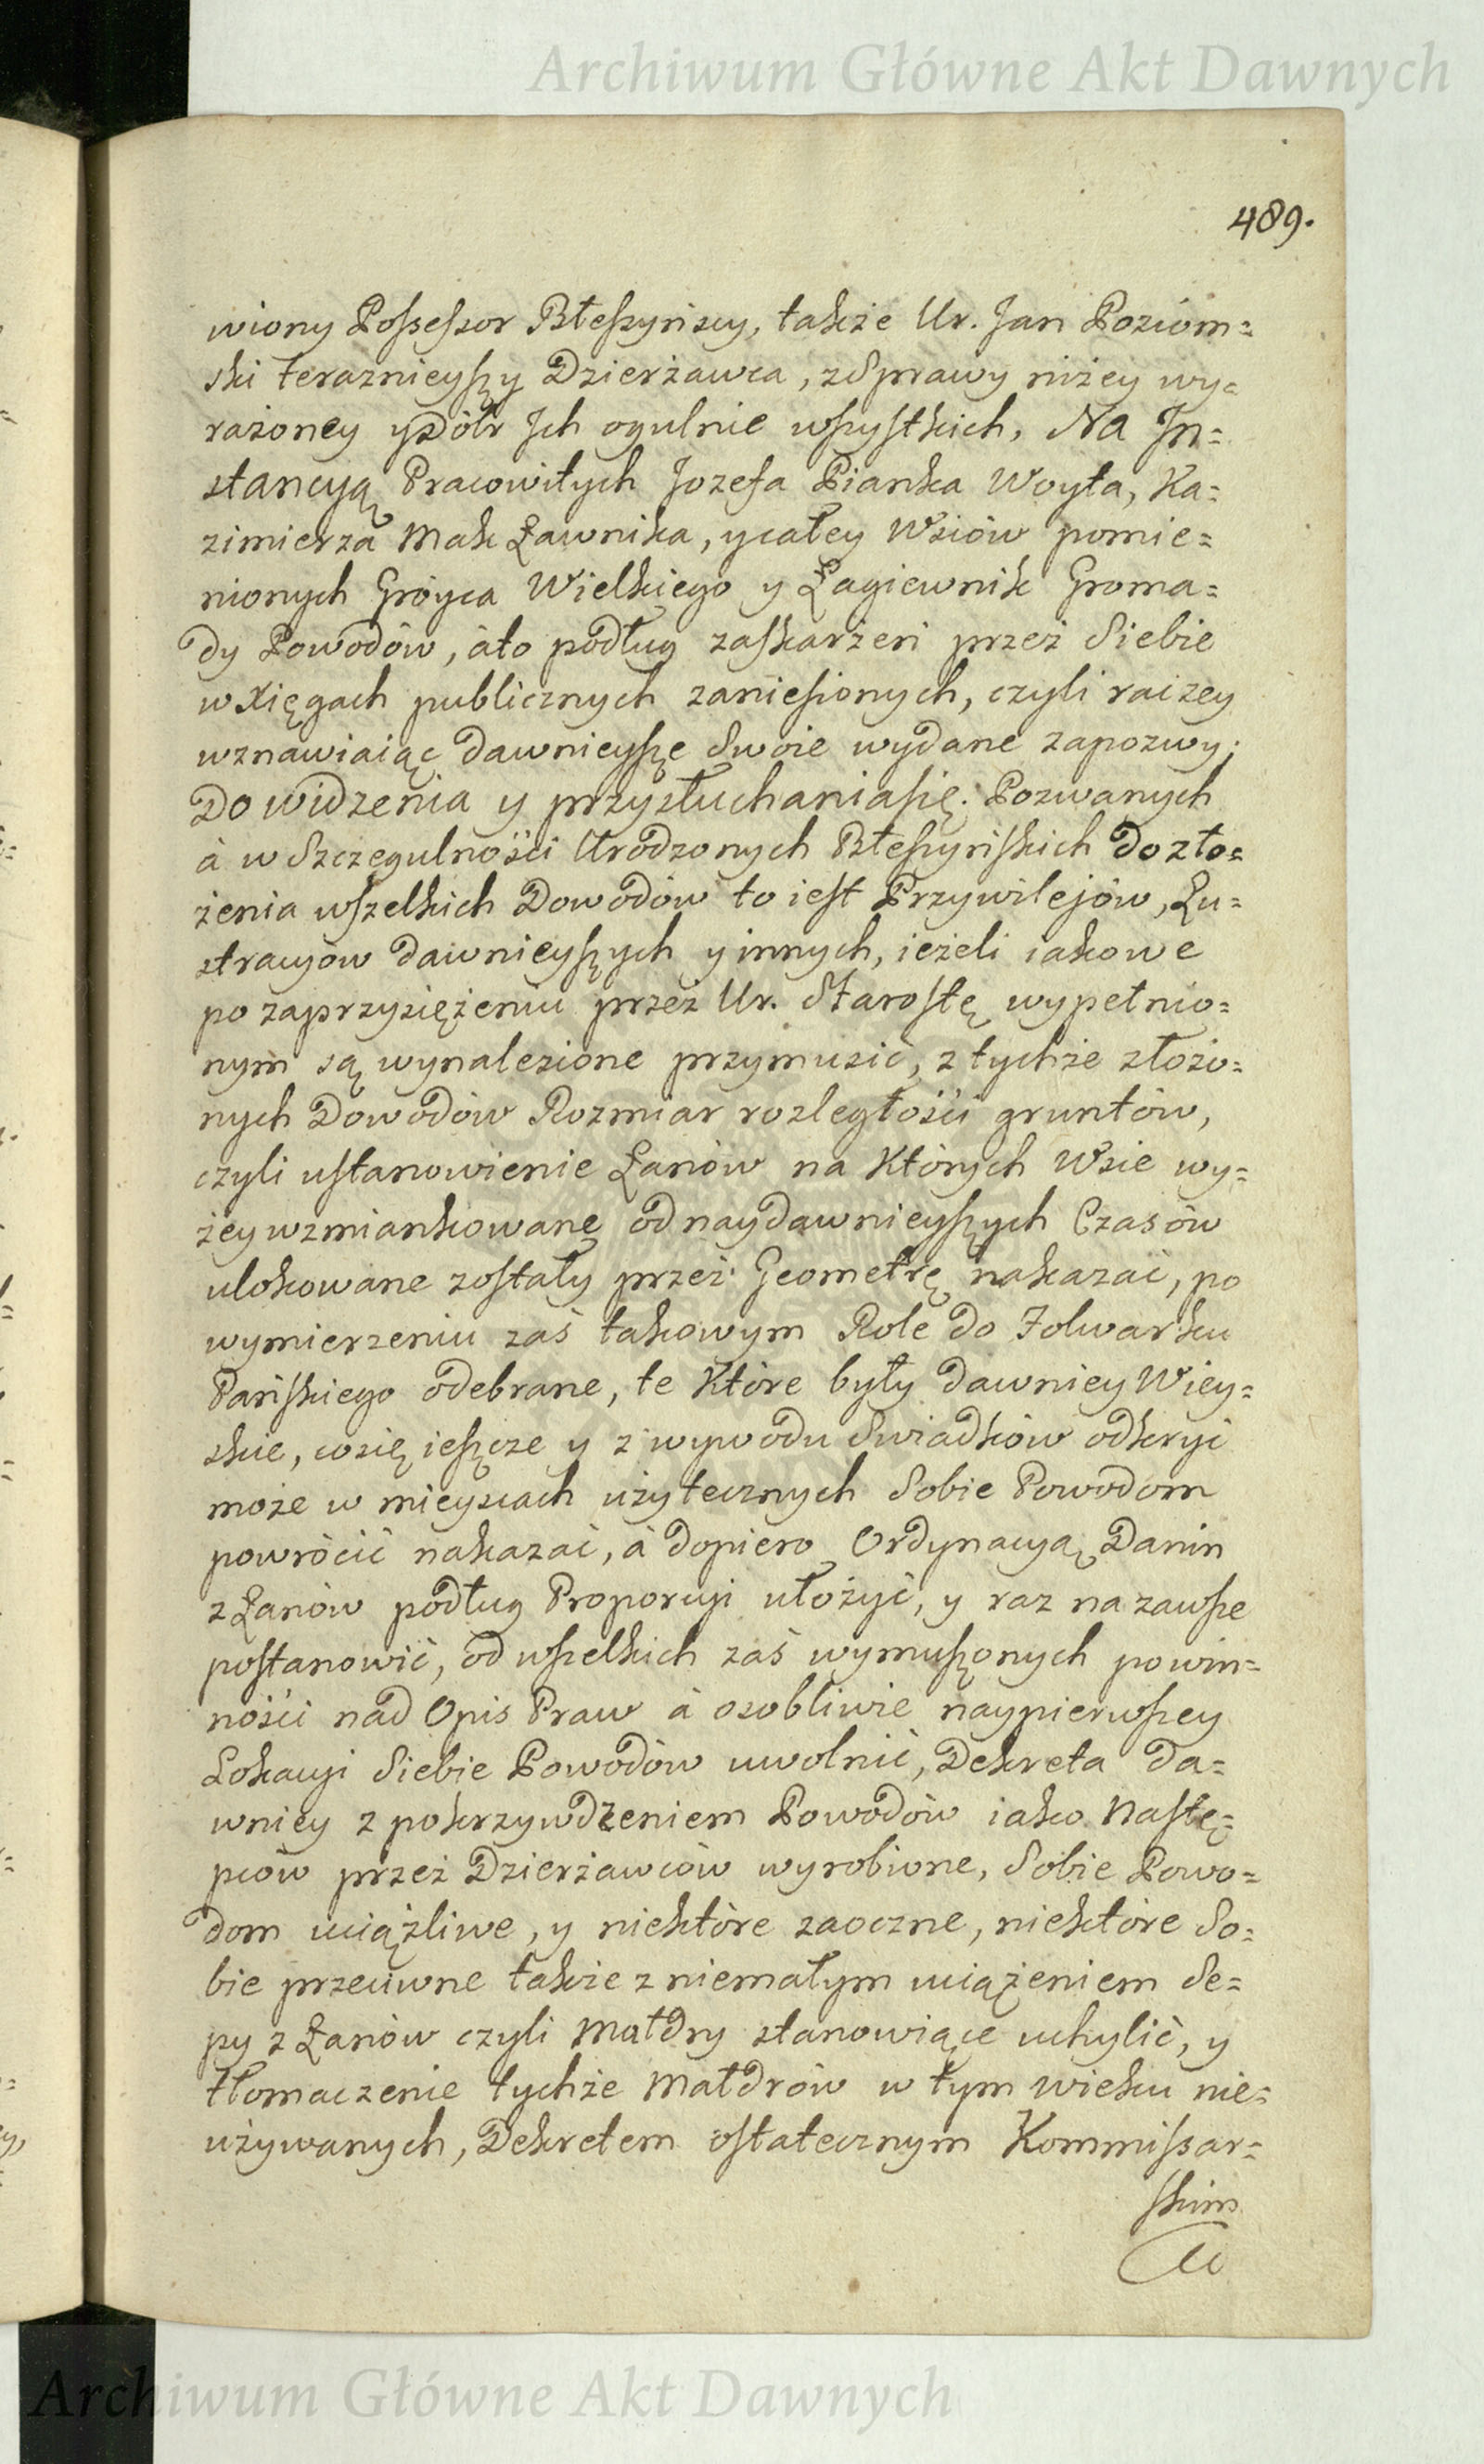 Archiwum Główne Akt Dawnych
489.
wiony Possessor Błeszyńscy, także Ur. Jan Poziom=
ski teraznieyszy Dzierżawca, z Sprawy niżey wy=
rażoney y Dóbr Jch ogulnie wszystkich, Na Jn=
stancyą Pracowitych Jozefa Pianka Woyta, Ka=
zimierza Mak Ławnika, y całey Wsiów pomie=
nionych Gróyca Wielkiego y Łagiewnik Groma=
dy Powodów, áto podług zaskarżeń przez Siebie
w Xięgach publicznych zaniesionych, czyli raczey
wznawiaiąc dawnieysze Swoie wydane zapozwy;
Do widzenia y przysłuchania się. Pozwanych
à w Szczegulności Urodzonych Błeszyńskich do zło=
żenia wszelkich Dowodów to iest Przywilejów, Lu=
stracyów dawnieyszych y innych, ieżeli iakowe
po zaprzysiężeniu przez Ur. Starostę wypełnio=
nym są wynalezione przymusić, z tychże złożo=
nych Dowodów Rozmiar rozległości gruntów,
czyli ustanowienie Łanów na Których Wsie wy=
żey wzmiankowane od naydawnieyszych Czasów
ulokowane zostały przez Geometrę nakazać, po
wymierzeniu zaś takowym Role do Folwarku
Pańskiego odebrane, te Które były dawniey Wiey=
skie, co się ieszcze y z wywodu Swiadków odkryć
może w mieyscach użytecznych Sobie Powodom
powrócić nakazać, à dopiero Ordynacyą Danin
z Łanów podług Proporcyi ułożyć, y raz na zawsze
postanowić, od wszelkich zaś wymuszonych powin=
ności nad Opis Praw à osobliwie naypierwszey
Lokacyi Siebie Powodów uwolnić, Dekreta da=
wniey z pokrzywdzeniem Powodów iako Nastę=
pców przez Dzierżawców wyrobione, Sobie Powo=
dom uciążliwe, y niektóre zaoczne, niektóre So=
bie przeciwne także z niemałym uciążeniem Se=
py z Łanów czyli Małdry stanowiące uchylić, y
tłomaczenie tychże Małdrów w tym wieku nie=
używanych, Dekretem ostatecznym Kommissar=
skim
Archiwum Główne Akt Dawnych